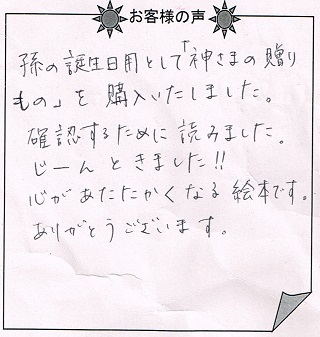 お客様の声
孫の誕生日用として「神さまの贈り
もの」を購入いたしました。
確認するために読みました。
じーんときました!!
心があたたかくなる絵本です。
ありがとうございます。